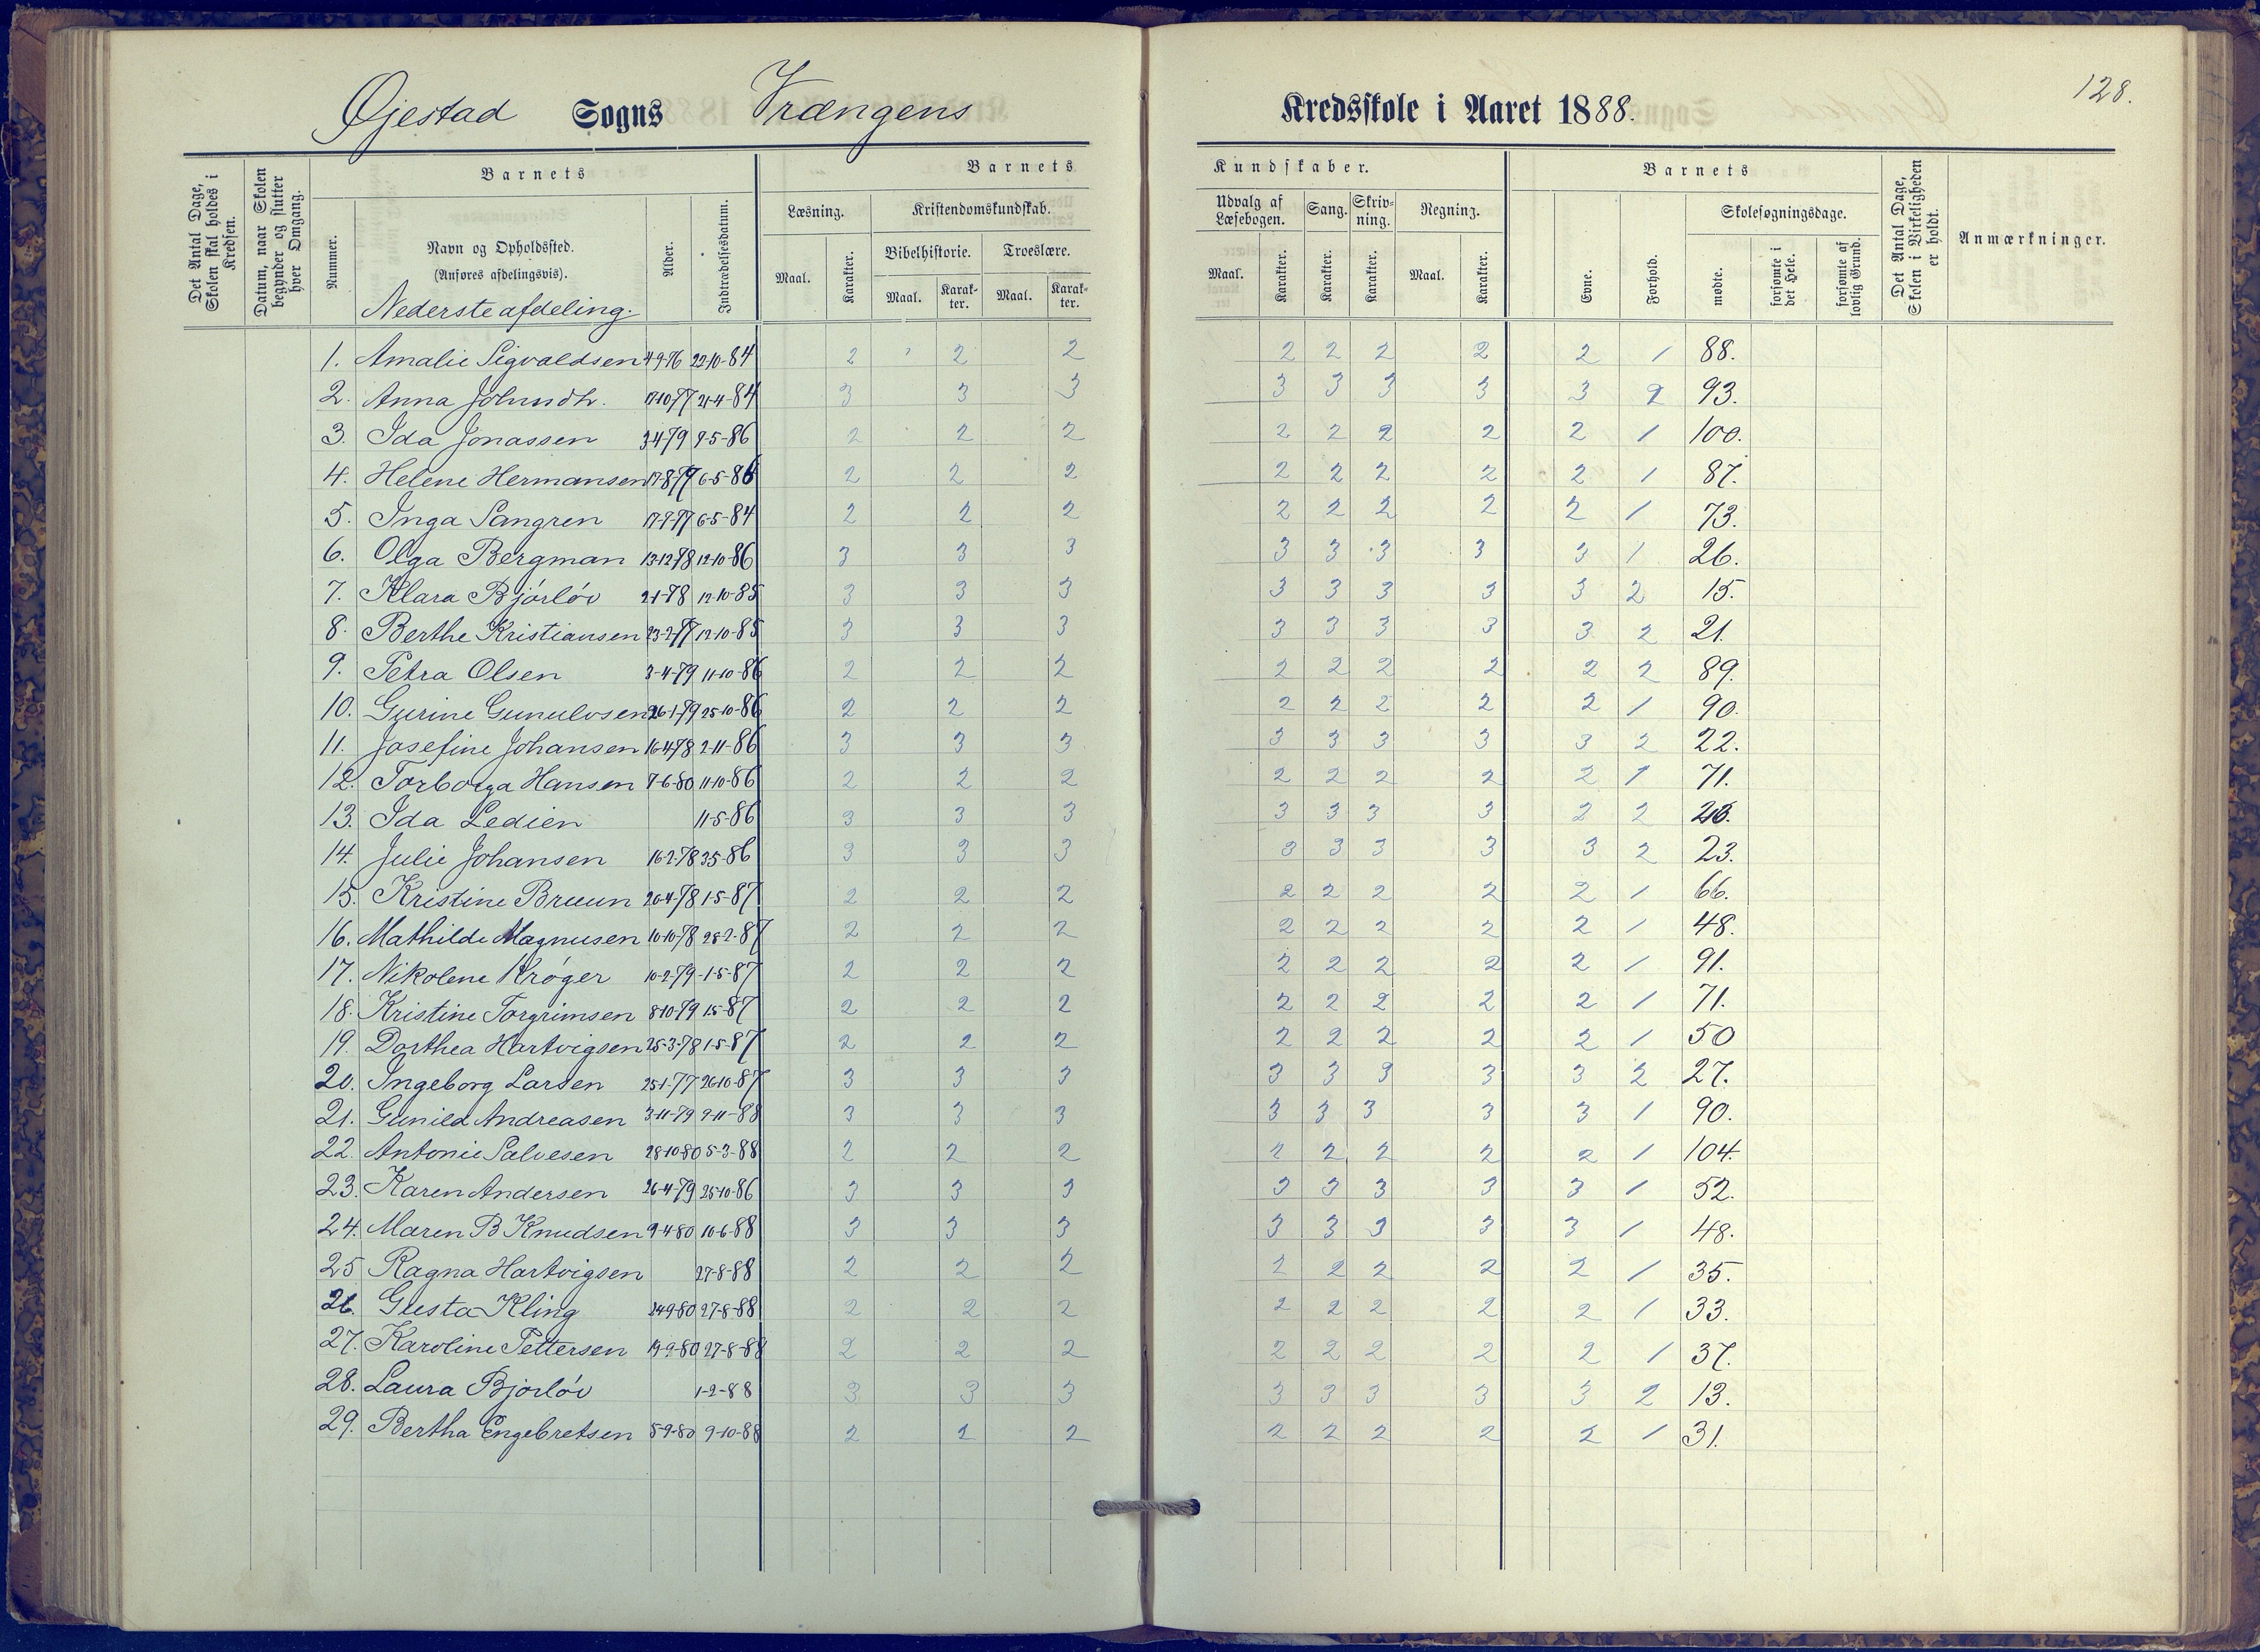 128.
Øjestad Sogns Vrængens Kredsskole i Aaret 1888.
Det Antal Dage, Skolen skal holdes i Kredsen.
Datum, naar Skolen begynder og slutter hver Omgang.
Barnets
Nummer.
Navn og Opholdssted.
(Anføres afdelingsvis).
Nederste afdeling.
Alder.
Indtrædelsesdatum.
Barnets Kundskaber.
Læsning.
Maal.
Karakter.
Kristendomskundskab.
Bibelhistorie.
Maal.
Karakter.
Troeslære.
Maal.
Karakter.
Udvalg af Læsebogen.
Maal.
Karakter.
Sang.
Karakter.
Skrivning.
Karakter.
Regning.
Maal.
Karakter.
Barnets
Evne.
Forhold.
Skolesøgningsdage.
mødte.
forsømte i det Hele.
forsømte af lovlig Grund.
Det Antal Dage, Skolen i Virkeligheden er holdt.
Anmærkninger.
1. Amalie Sigvaldsen 4-9-76 22-10-84 2 2 2 2 2 2 2 2 1 88.
2. Anna 17-10-77 21-4-84 3 3 3 3 3 3 3 3 2 93.
3. Ida Jonassen 3-4-79 9-5-86 2 2 2 2 2 2 2 2 1 100.
4. Helene Hermansen 17-8-79 6-5-86 2 2 2 2 2 2 2 2 1 87.
5. Inga Sangren 17-9-77 6-5-84 2 2 2 2 2 2 2 2 1 73.
6. Olga Bergman 13-12-78 12-10-86 3 3 3 3 3 3 3 3 1 26.
7. Klara Bjórlóv 2-1-78 12-10-85 3 3 3 3 3 3 3 3 2 15.
8. Berthe Kristiansen 23-2-77 12-10-85 3 3 3 3 3 3 3 3 2 21.
9. Petra Olsen 3-4-79 11-10-86 2 2 2 2 2 2 2 2 2 89.
10. Gurine Gunulvsen 26-1-79 25-10-86 2 2 2 2 2 2 2 2 1 90.
11. Josefine Johansen 16-4-78 2-11-86 3 3 3 3 3 3 3 3 2 22.
12. Torborga Hansen 7-6-80 11-10-86 2 2 2 2 2 2 2 2 1 71.
13. Ida Ledien 11-5-86 3 3 3 3 3 3 3 2 2
14. Julie Johansen 16-2-78 3-5-86 3 3 3 3 3 3 3 3 2 23.
15. Kristine Bruun 20-4-78 1-5-87 2 2 2 2 2 2 2 2 1 66.
16. Mathilde Magnusen 10-10-78 28-2-87 2 2 2 2 2 2 2 2 1 48.
17. Nikolene Króger 10-2-79 1-5-87 2 2 2 2 2 2 2 2 1 91.
18. Kristine Torgrimsen 8-10-79 1-5-87 2 2 2 2 2 2 2 2 1 71.
19. Dorthea Hartvigsen 25-3-78 1-5-87 2 2 2 2 2 2 2 2 1 50
20. Ingeborg Larsen 25-1-77 26-10-87 3 3 3 3 3 3 3 3 2 27.
21. Gunild Andreasen 3-11-79 9-11-88 3 3 3 3 3 3 3 3 1 90.
22. Antonie Salvesen 28-10-80 5-3-88 2 2 2 2 2 2 2 2 1 104.
23. Karen Andersen 26-4-79 25-10-86 3 3 3 3 3 3 3 3 1 52.
24. Maren B Knudsen 9-4-80 10-6-88 3 3 3 3 3 3 3 3 1 48.
25 Ragna Hartvigsen 27-8-88 2 2 2 2 2 2 2 2 1 35.
26. Gusta Kling 24-9-80 27-8-88 2 2 2 2 2 2 2 2 1 33.
27. Karoline Pettersen 19-9-80 27-8-88 2 2 2 2 2 2 2 2 1 37.
28. Laura Bjorlóv 1-2-88 3 3 3 3 3 3 3 3 2 13.
29. Bertha Engebretsen 5-9-80 9-10-88 2 2 2 2 2 2 2 2 1 31.